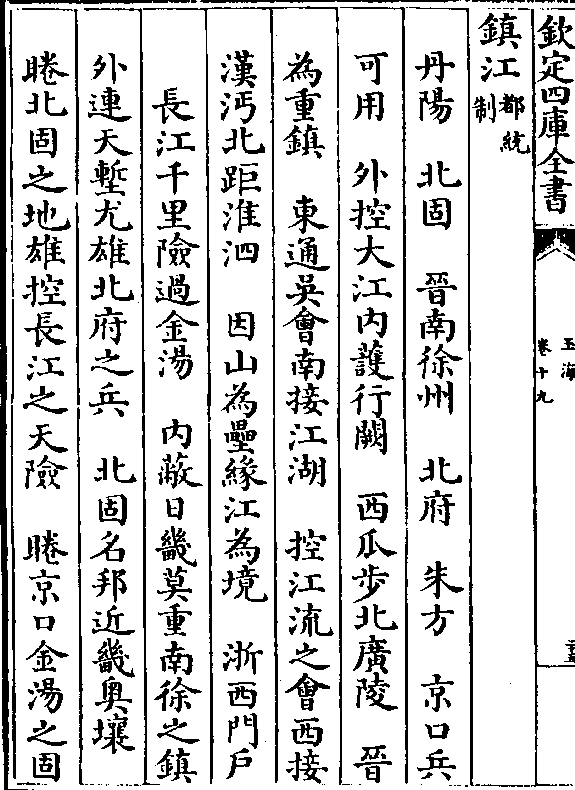 欽定四庫全書
玉海
卷十九
鎮江都統制
丹陽　北固　晉南徐州　北府　朱方　京口兵
可用　外控大江内護行闕　西瓜步北廣陵　晉
為重鎮　東通吳會南接江湖　控江流之會西接
漢沔北距淮泗　因山為壘緣江為境　浙西門戶
長江千里險過金湯　内蔽日畿莫重南徐之鎮
外連天塹尤雄北府之兵　北固名邦近畿奥壤
睠北固之地雄控長江之天險　睠京口金湯之固